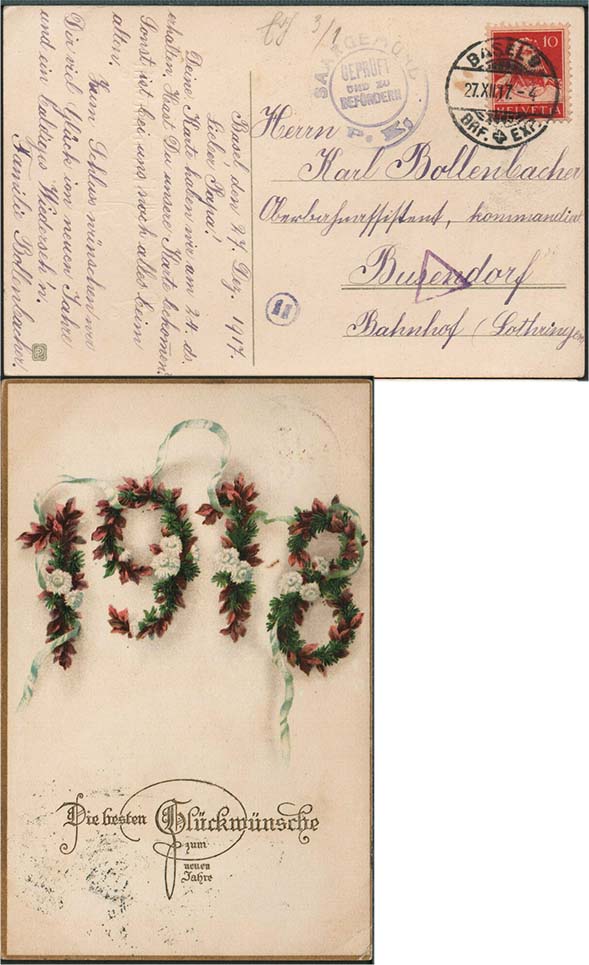 Basel den 27. Dez. 1917.
Lieber Papa!
Deine Karte haben wir am 24. ds.
erhalten. Hast Du unsere Karte bekommen.
Sonst ist bei uns noch alles beim
alten.
Zum Schluss wünschen wir
Dir viel Glück im neuen Jahre
und ein baldiges Wiederseh'n.
Familie Bollenbacher.
3/1
SAARGEMÜND
GEPRÜFT
UND ZU
BEFÖRDERN
P. K.
10
HELVETIA
BASEL 2
27.XII.17.-4
BRF. EXP.
Herrn
Karl Bollenbacher
Oberbahnassistent, kommandie
Busendorf
Bahnhof (Lothringen
11
1918
Die besten Glückwünsche
zum
neuen
Jahre